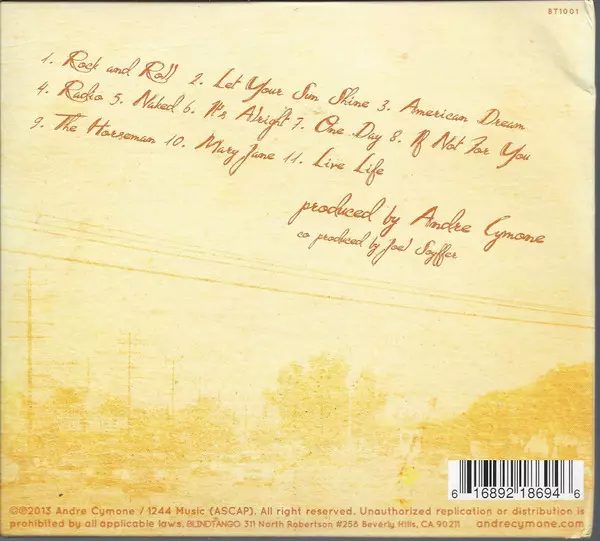 BT1001
1. Rock and Roll 2. Let Your Sun Shine 3. American Dream
4. Radio 5. Naked 6. It's Alright 7. One Day 8. If Not For You
9. The Horseman 10. Mary Jane 11. Live Life
produced by Andre Cymone
co produced by Joel Soyffer
6 16892 18694 6
©℗2013 Andre Cymone / 1244 Music (ASCAP). All right reserved. Unauthorized replication or distribution is
prohibited by all applicable laws. BLINDTANGO 311 North Robertson #256 Beverly Hills, CA 90211 andrecymone.com